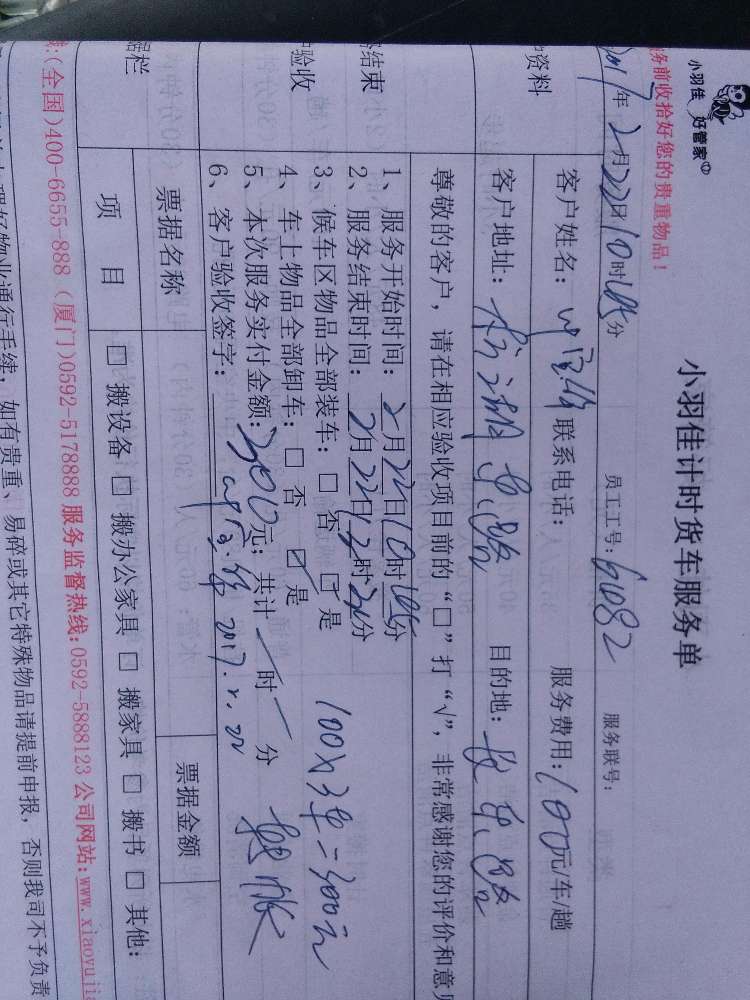 小羽佳 好管家
务前收拾好您的贵重物品！
小羽佳计时货车服务单
2017年2月22日10时45分 员工工号：6082 服务联号：
资料
客户姓名： 联系电话： 服务费用：100元/车/趟
客户地址： 目的地：
尊敬的客户，请在相应验收项目前的“□”打“√”，非常感谢您的评价和意见
结束
验收
1、服务开始时间：2月22日10时45分
2、服务结束时间：2月22日12时 分
3、候车区物品全部装车：□ 否 ☑ 是
4、车上物品全部卸车：□ 否 ☑ 是
100×3车=300元
5、本次服务实付金额：300元；共计 时 分
6、客户验收签字： 2017.2.22
据栏
票据名称 票据金额
项 目 □ 搬设备 □ 搬办公家具 □ 搬家具 □ 搬书 □ 其他：
线：(全国)400-6655-888 (厦门)0592-5178888 服务监督热线：0592-5888123 公司网站：www.xiaoyujia
办理好物业通行手续，如有贵重、易碎或其它特殊物品请提前申报，否则我司不予负责